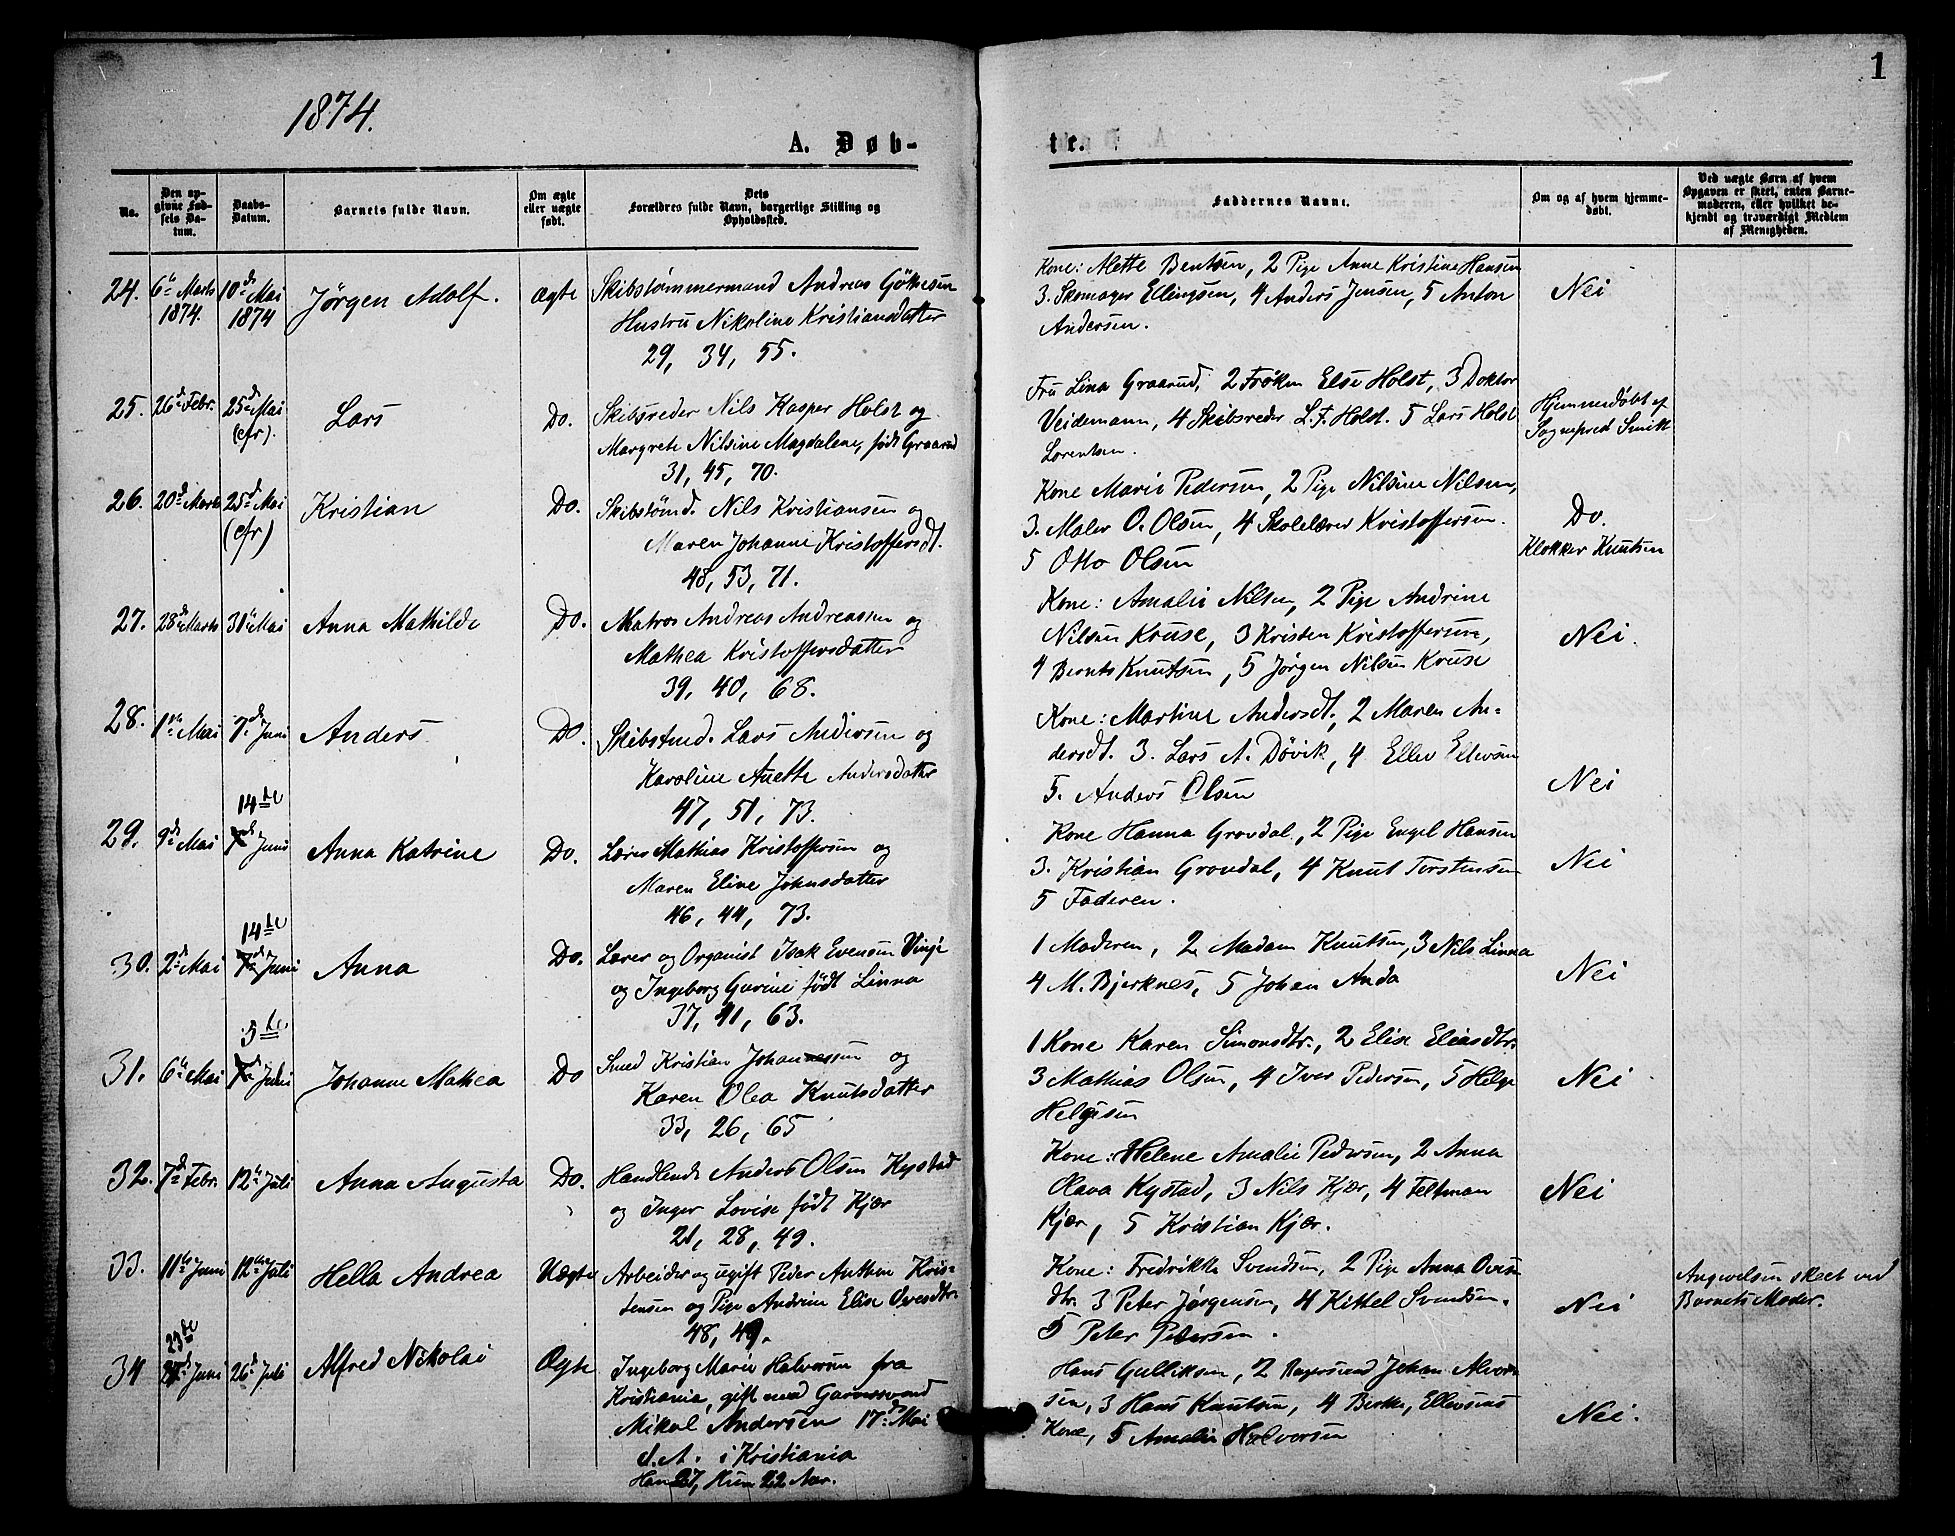 1
1874.
A. Døb-
te.
No.
Den op-
givne Fød-
sels Da-
tum.
Daabs-
Datum.
Barnets fulde Navn.
Om ægte
eller uægte
født.
Dets
Forældres fulde Navn, borgerlige Stilling og
Opholdssted.
Faddernes Navne.
Om og af hvem hjemme-
døbt.
Ved uægte Børn af hvem
Opgaven er skeet, enten Barne-
moderen, eller hvilket be-
kjendt og troværdigt Medlem
af Menigheden.
24. 6te Marts 1874. 10de Mai 1874 Jørgen Adolf. ægte
Skibstømmermand Andreas
Hustru Nikoline Kristiansdatter
29, 34, 55.
Kone: Mette Bentsen, 2 Pige Anne Kristine Hansen
3. Skomager Ellingsen, 4 Anders Jensen, 5 Anton
Andersen.
Nei
25. 26de Febr. 25de Mai (cfr). Lars Do.
Skibsreder Nils Kasper Holst og
Margrete Nilsine Magdalene, født Graarud
31, 45, 70.
Fru Lina Graarud, 2 Frøken Else Holst, 3 Doktor
Veidemann, 4 Skibsreder L. F. Holst. 5 Lars Holst
Lorentsen.
Hjemmedøbt af
Sognepræst Smitt
26. 20de Marts 25de Mai (cfr) Kristian Do.
Skibstømd. Nils Kristiansen og
Maren Johanne Kristoffersdt.
48, 53, 71.
Kone Marie Pedersen, 2 Pige Nilsine Nilsen,
3. Maler O. Olsen, 4 Skolelærer Kristoffersen.
5 Otto Olsen
Do.
Klokker Knutsen
27. 28de Marts 31te Mai Anna Mathilde Do.
Matros Andreas Andreassen og
Mathea Kristoffersdatter
39, 40, 68.
Kone: Amalie Nilsen, 2 Pige Andrine
Nilsen Kruse, 3 Kristen Kristoffersen,
4 Bernts Knutsen, 5 Jørgen Nilsen Kruse
Nei.
28. 1ste Mai 7de Juni Anders Do.
Skibstmd. Lars Andersen og
Karoline Anette Andersdatter
47, 51, 73.
Kone: Martine Andersdt, 2 Maren An-
dersdt. 3. Lars A. Døvik, 4 Ellev Ellevsen
5. Anders Olsen
Nei
29. 9de Mai 14de 7de Juni Anna Katrine Do.
Lærer Mathias Kristoffersen og
Maren Eline Johnsdatter
46, 44, 73.
Kone Hanna Grovdal, 2 Pige Engel Hansen
3. Kristian Grovdal, 4 Knut Torstensen
5 Faderen.
Nei
30. 2de Mai 14de 7de Juni Anna Do.
Lærer og Organist Isak Evensen Vinje
og Ingeborg Gurine født Linna
37, 41, 63.
1 Moderen, 2 Madam Knutsen, 3 Nils Linna
4 M. Bjerknes, 5 Johan Anda
Nei
31. 6te Mai 5te 7de Juli Johanne Mathea Do
Smed Kristian Johannessen og
Karen Olea Knutsdatter
33, 26, 65
1 Kone Karen Simonsdtr., 2 Elise Eliasdtr.
3 Mathias Olsen, 4 Iver Pedersen, 5 Helge
Helgesen
Nei
32. 7de Febr. 12te Juli Anna Augusta Do.
Handlende Anders Olsen Kystad
og Inger Lovise født Kjær
21, 28, 49.
Kone: Helene Amalie Pedersen, 2 Anna
Olava Kystad, 3 Nils Kjær, 4 Feltman
Kjær, 5 Kristian Kjær.
Nei
33. 11te Juni 12te Juli Hella Andrea Uægte
Arbeider og ugift Peder Anthon Kris-
tensen og Pige Andrine Elise Ovesdtr.
48, 49.
Kone: Fredrikke Svendsen, 2 Pige Anna Oves
dtr. 3 Peter Jørgensen, 4 Kittel Svendsen.
5 Peter Pedersen.
Nei
Angivelsen skeet ved
Barnets Moder.
34 23de Juni 26de Juli Alfred Nikolai Ægte
Ingeborg Marie Halvorsen fra
Kristiania, gift med Garversvend
Mikal Andersen 17de Mai
d. A. i Kristiania
Han 27, Hun 22 Aar.
Hans Gulliksen, 2 Johan Alver-
sen, 3 Hans Knutsen, 4 Berthe, Ellevsens
Kone, 5 Amalie Halvorsen
Nei.